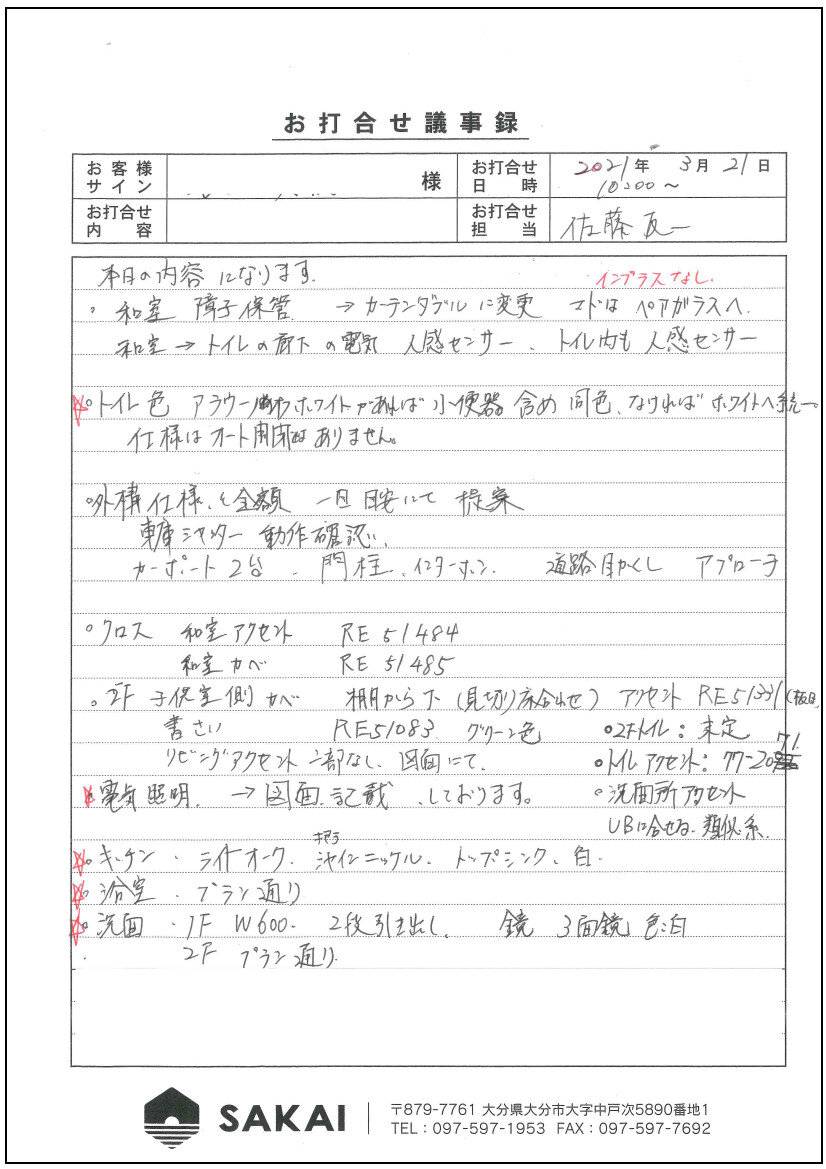 お打合せ議事録
お客様サイン 様 お打合せ日時 2021年 3月 21日
10:00〜
お打合せ内容 お打合せ担当 佐藤友一
本日の内容になります。 インプラスなし.
。和室 障子保管 → カーテンダブルに変更 マドは ペアガラスへ.
和室→トイレの廊下の電気 人感センサー、トイレ内も 人感センサー
☆。トイレ色 アラウーノ ホワイトがあれば 小便器 含め 同色、なければ ホワイトへ統一。
仕様はオート開閉はありません。
。外構仕様、金額 一旦 目安にて 提案
車庫シャッター 動作確認、
カーポート 2台 、門柱、インターホン、 道路目かくし アプローチ
。クロス 和室アクセント RE 51484
和室カベ RE 51485
。2F 子供室側 カベ 棚から下 (見切り床合わせ) アクセント RE51331
書さい RE51083 グリーン色 。2Fトイレ:未定
リビングアクセント 一部なし、図面にて、 。トイレ アクセント: 77-2071
☆電気照明、→ 図面 記載、しております。 。洗面所アクセント
UBに合せる、類似系.
☆。キッチン、ライトオーク、シャインニッケル、トップシンク、白.
☆。浴室、プラン通り
☆。洗面、1F W600、2段引き出し、 鏡 3面鏡 色:白
2F プラン通り
SAKAI
〒879-7761 大分県大分市大字中戸次5890番地1
TEL:097-597-1953 FAX:097-597-7692